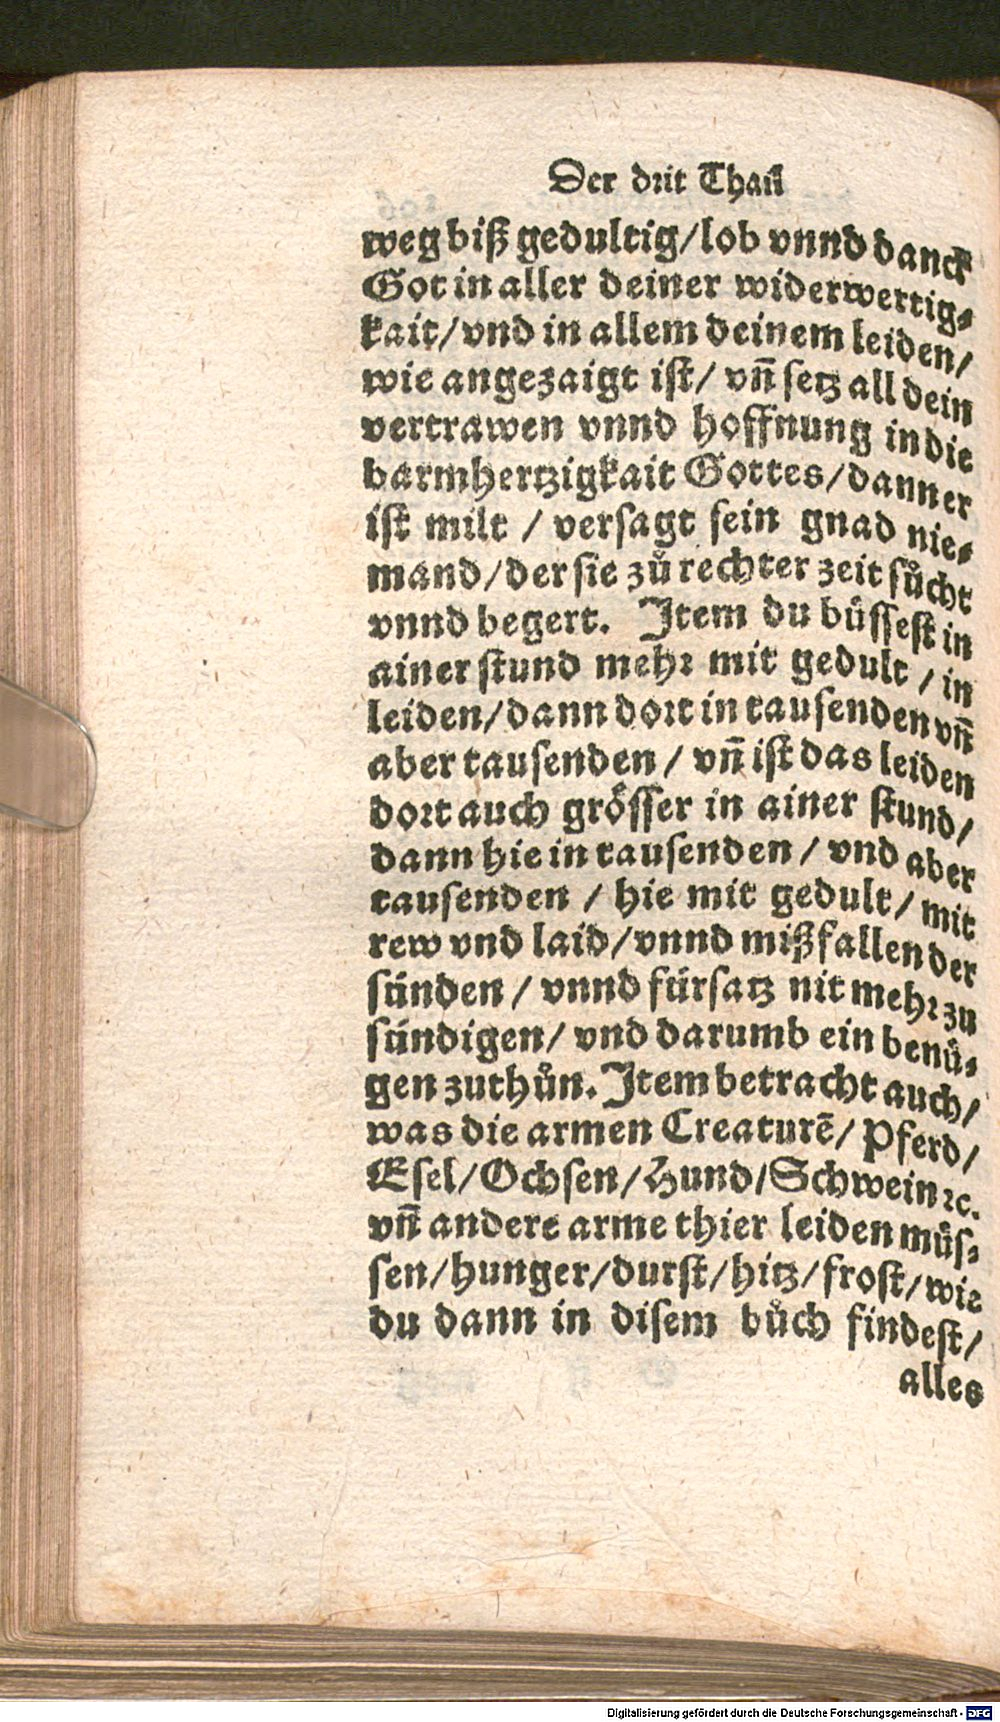 Der drit Thail
weg biß gedultig/lob vnnd danck
Got in aller deiner widerwertig⸗
kait/vnd in allem deinem leiden/
wie angezaigt ist/ vñ setz all dein
vertrawen vnnd hoffnung in die
barmhertzigkait Gottes/dann er
ist milt / versagt sein gnad nie⸗
mand/der sie zů rechter zeit sůcht
vnnd begert. Item du bůssest in
ainer stund mehr mit gedult / in
leiden/dann dort in tausenden vñ
aber tausenden / vñ ist das leiden
dort auch grösser in ainer stund/
dann hie in tausenden / vnd aber
tausenden / hie mit gedult/ mit
rew vnd laid/vnnd mißfallen der
sünden / vnnd fürsatz nit mehr zu
sündigen/ vnd darumb ein benů⸗
gen zuthůn. Item betracht auch/
was die armen Creaturē/ Pferd/
Esel/Ochsen/Hund/Schwein ꝛc.
vñ andere arme thier leiden můs⸗
sen/hunger/durst/hitz/frost/wie
du dann in disem bůch findest/
alles
Digitalisierung gefördert durch die Deutsche Forschungsgemeinschaft - DFG